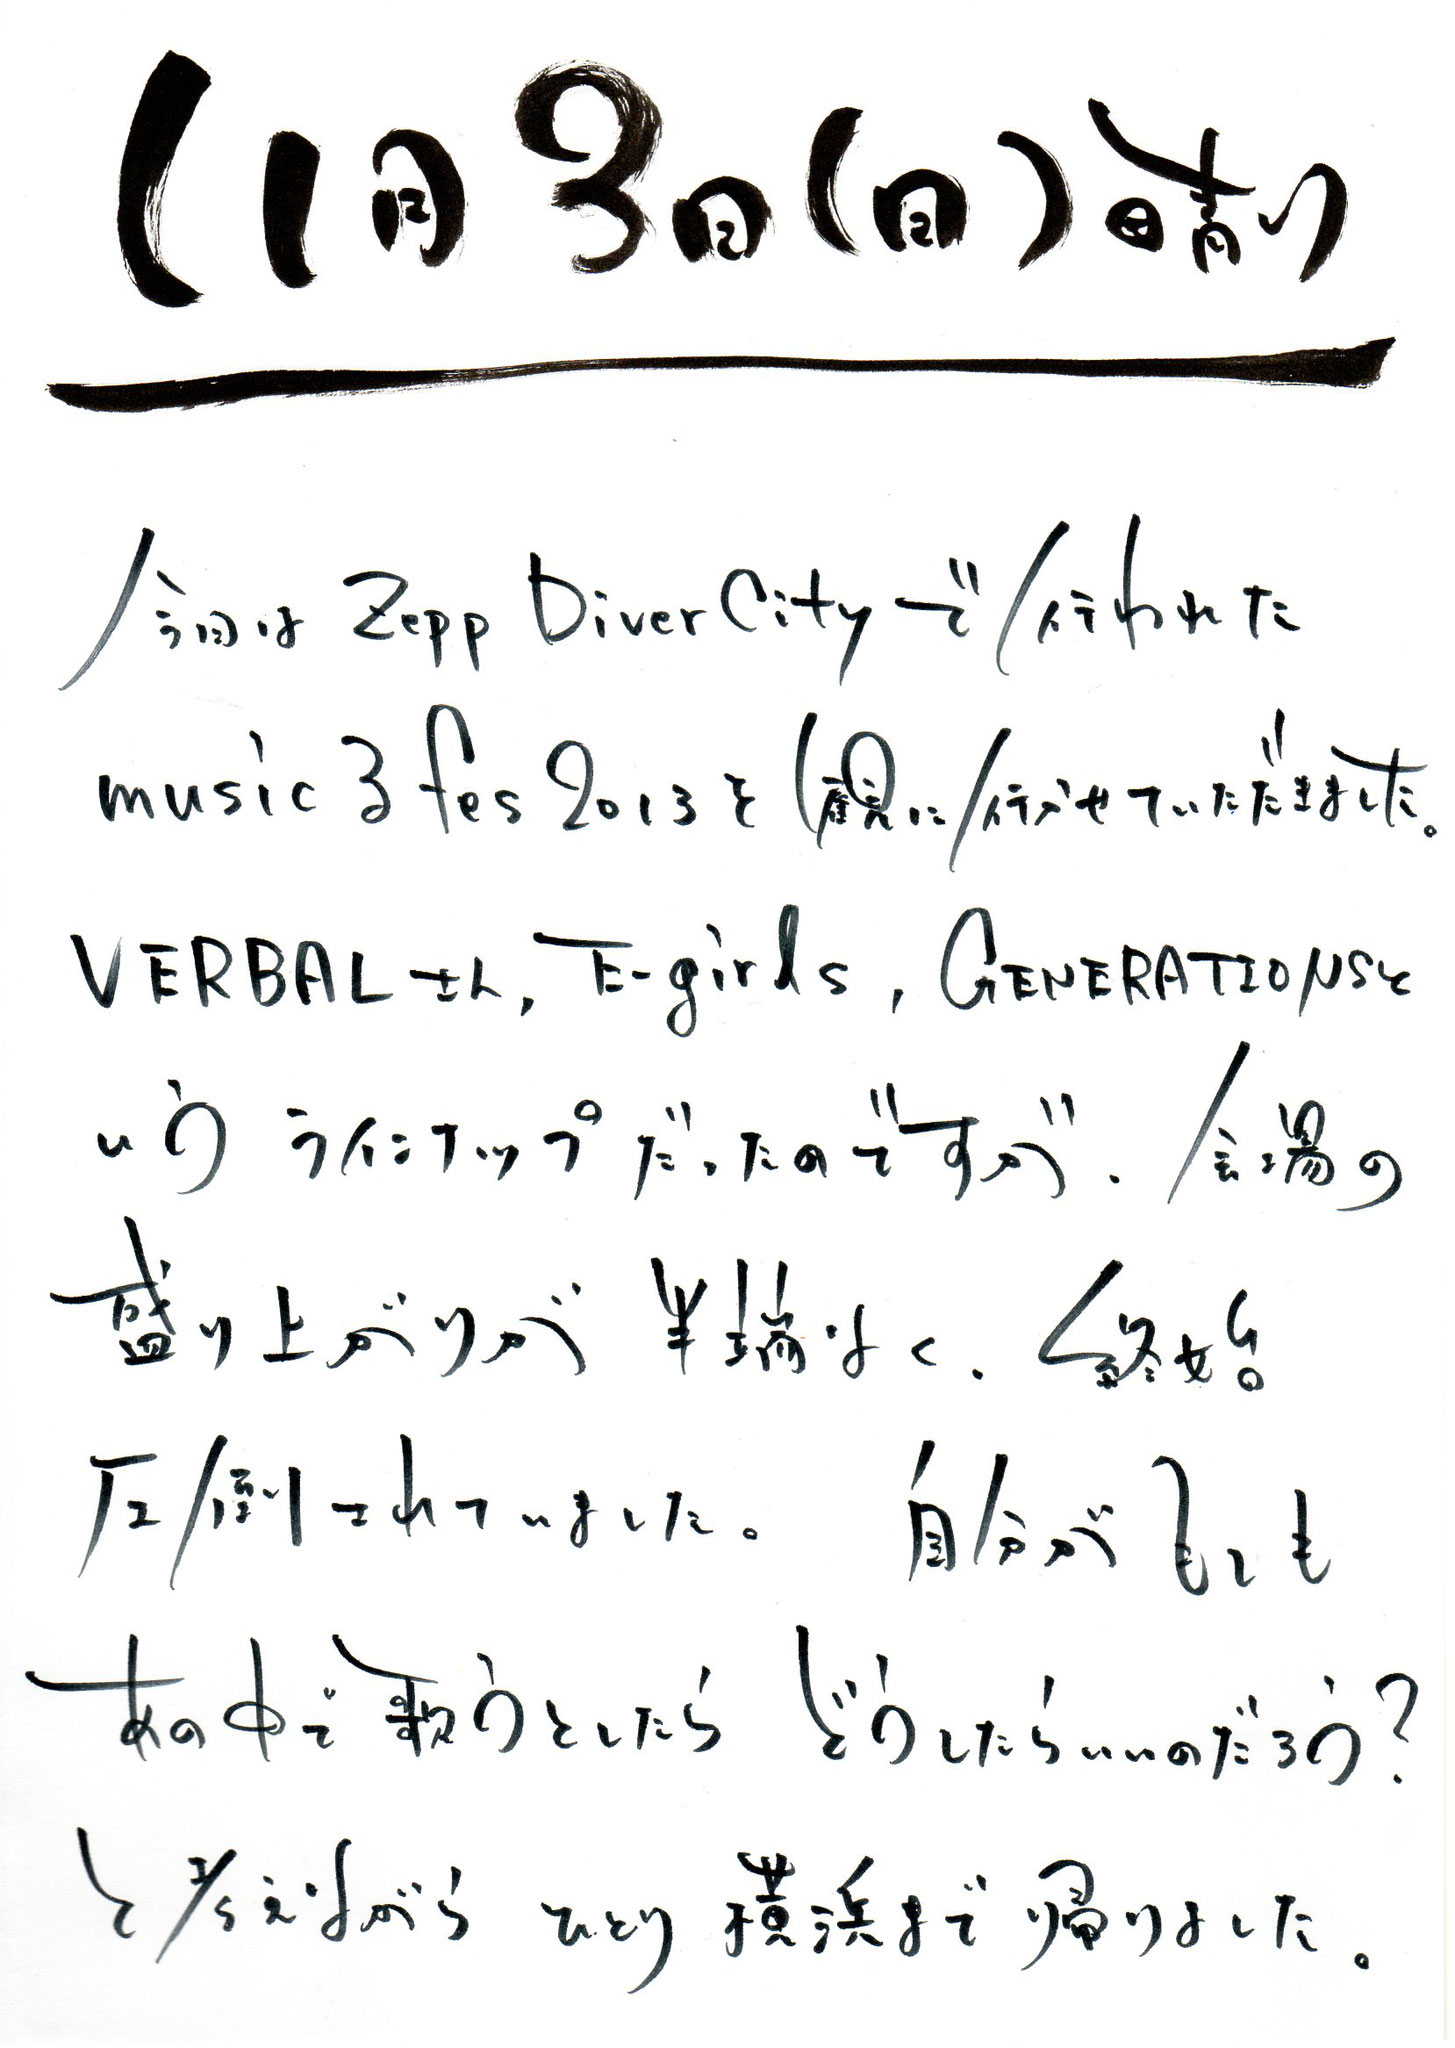 11月3日(日)晴り
今回は Zepp DiverCityで行われた
musicるfes2013を観に行かせていただきました。
VERBALさん, E-girls, GENERATIONSと
いう ラインナップだったのですが、会場の
盛り上がりが半端なく、終始
圧倒されていました。 自分がもしも
あの中で歌うとしたら どうしたらいいのだろう?
と考えながら ひとり横浜まで帰りました。